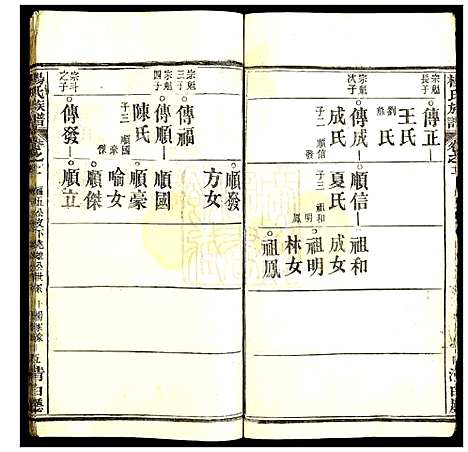 楊氏族譜
宗魁長子
傳正
王氏
劉氏
宗魁次子
傳成
順信
祖和
成氏
夏氏
成女
子二 順信 順發
子三 祖和 祖明 祖鳳
祖明
林女
祖鳳
順發
方女
宗魁三子
傳福
宗魁四子
傳順
順國
陳氏
順豪
子三 順國 豪 傑
喻女
順傑
宗斗之子
傳發
順立
楊氏族譜
清白廳